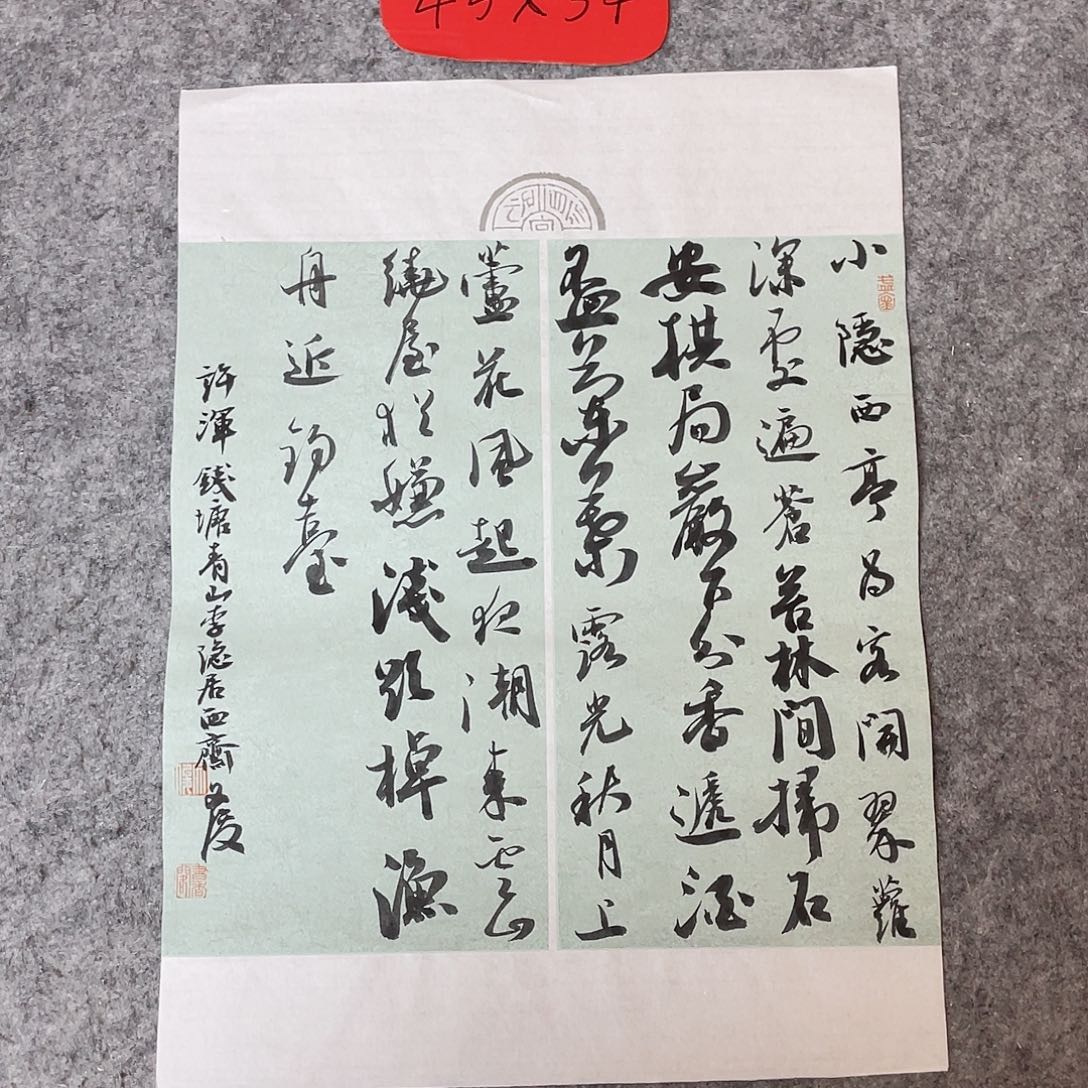 45×34
小隱西亭為客開翠蘿
深處遍蒼苔林間掃石
安棋局巖下分香遞酒
盃蘭葉露光秋月上
蘆花風起夜潮來雲山
繞屋猶嫌淺欲棹漁
舟近釣臺
許渾錢塘青山李隱居西齋